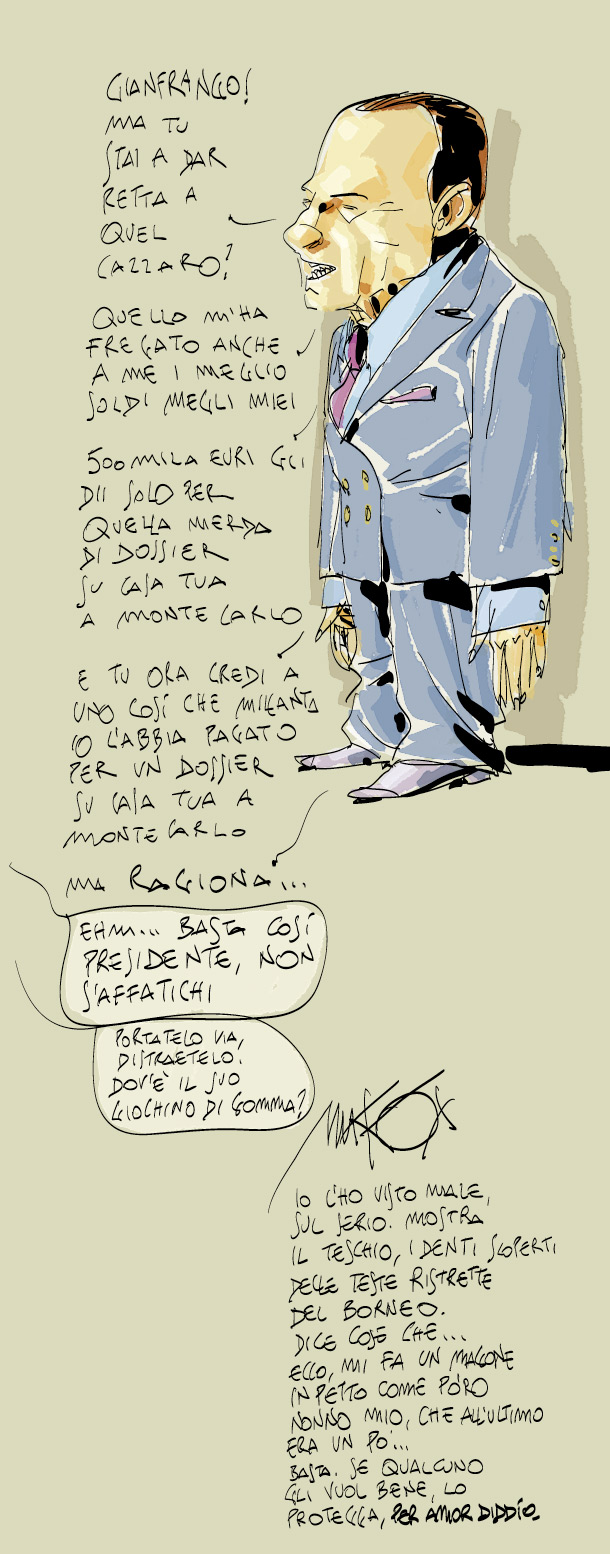 GIANFRANCO!
MA TU
STAI A DAR
RETTA A
QUEL
CAZZARO?
QUELLO M'HA
FREGATO ANCHE
A ME I MEGLIO
SOLDI MEGLI MIEI
500 MILA EURI GLI
DII SOLO PER
QUELLA MERDA
DI DOSSIER
SU CASA TUA
A MONTE CARLO
E TU ORA CREDI A
UNO COSÍ CHE MILLANTA
IO L'ABBIA PAGATO
PER UN DOSSIER
SU CASA TUA A
MONTE CARLO
MA RAGIONA...
EHM... BASTA COSÍ
PRESIDENTE, NON
S'AFFATICHI
PORTATELO VIA,
DISTRAETELO.
DOV'È IL SUO
GIOCHINO DI GOMMA?
MAKKOX
IO L'HO VISTO MALE,
SUL SERIO. MOSTRA
IL TESCHIO, I DENTI SCOPERTI
DELLE TESTE RISTRETTE
DEL BORNEO.
DICE COSE CHE...
ECCO, MI FA UN MAGONE
IN PETTO COME PÓRO
NONNO MIO, CHE ALL'ULTIMO
ERA UN PO'...
BASTA. SE QUALCUNO
GLI VUOL BENE, LO
PROTEGGA, PER AMOR DIDDÍO.